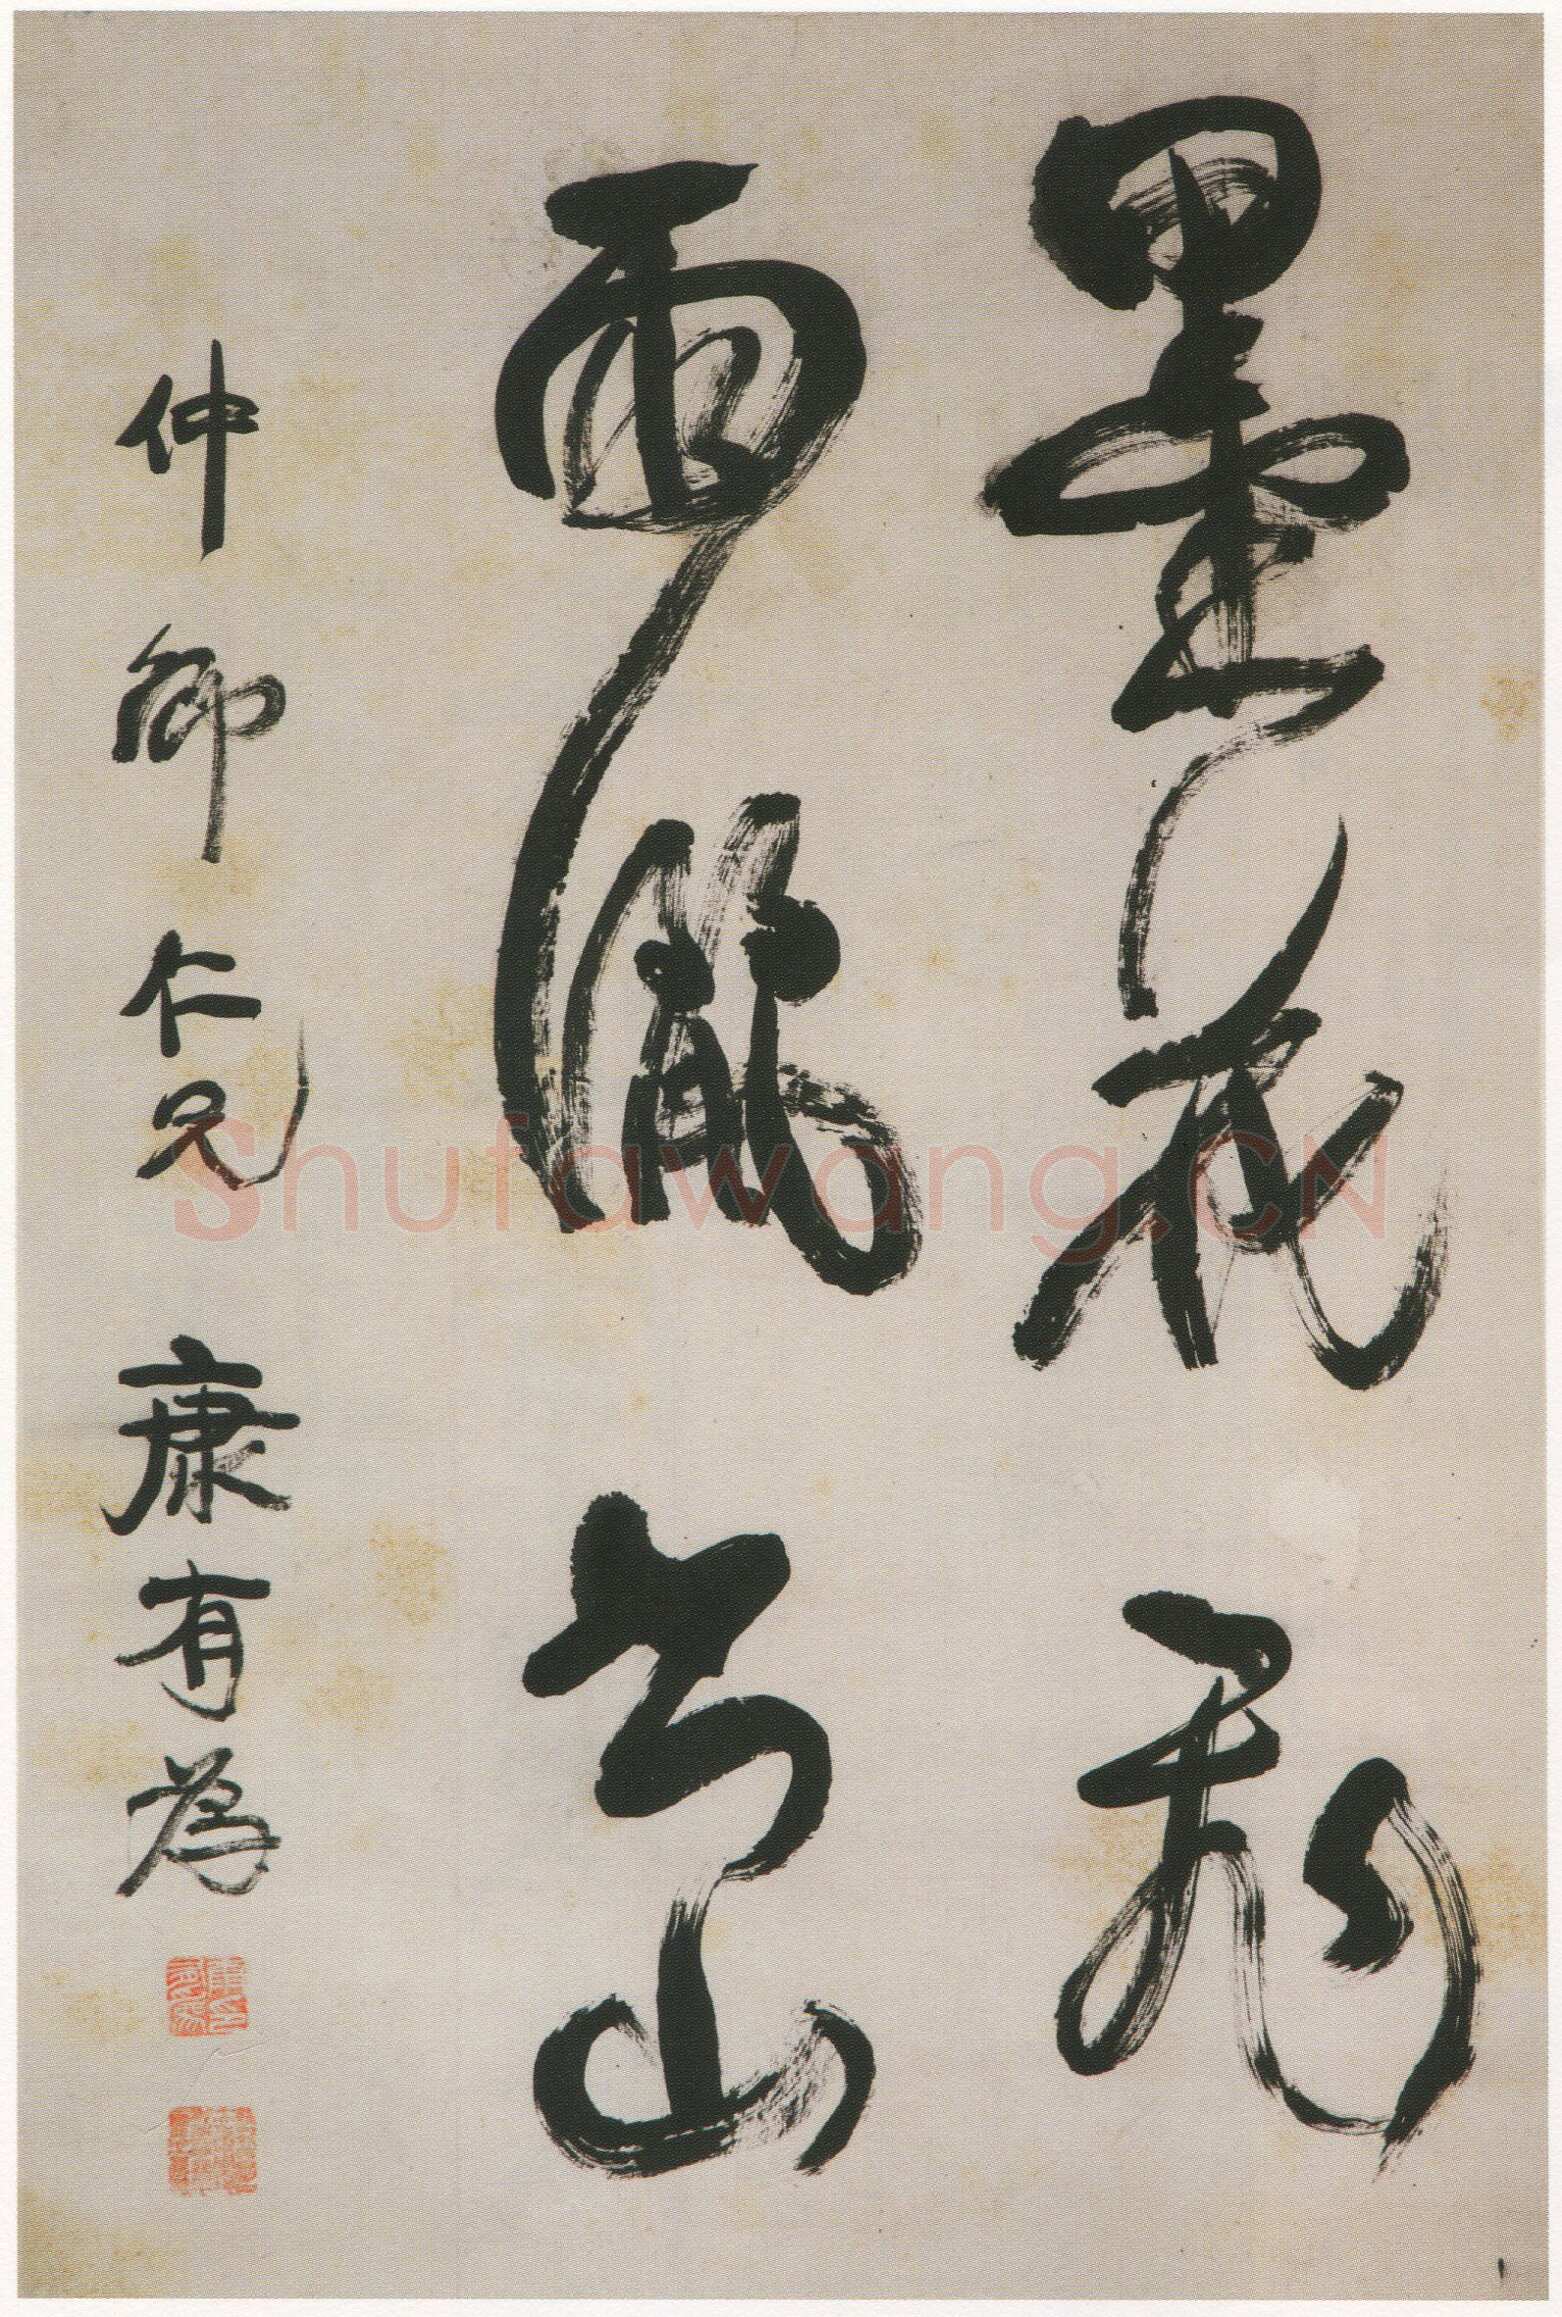 墨花飛
雨山
仲卿仁兄 康有為
Shufawang.CN